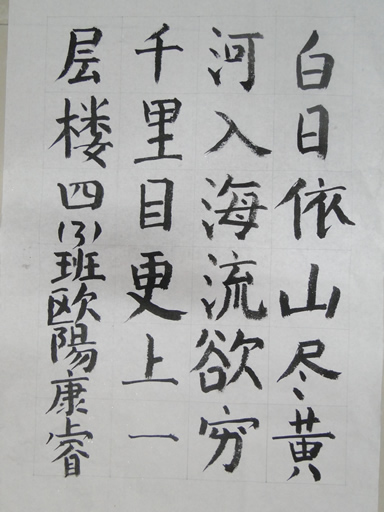 白日依山尽黄
河入海流欲穷
千里目更上一
层楼四(3)班欧陽康睿